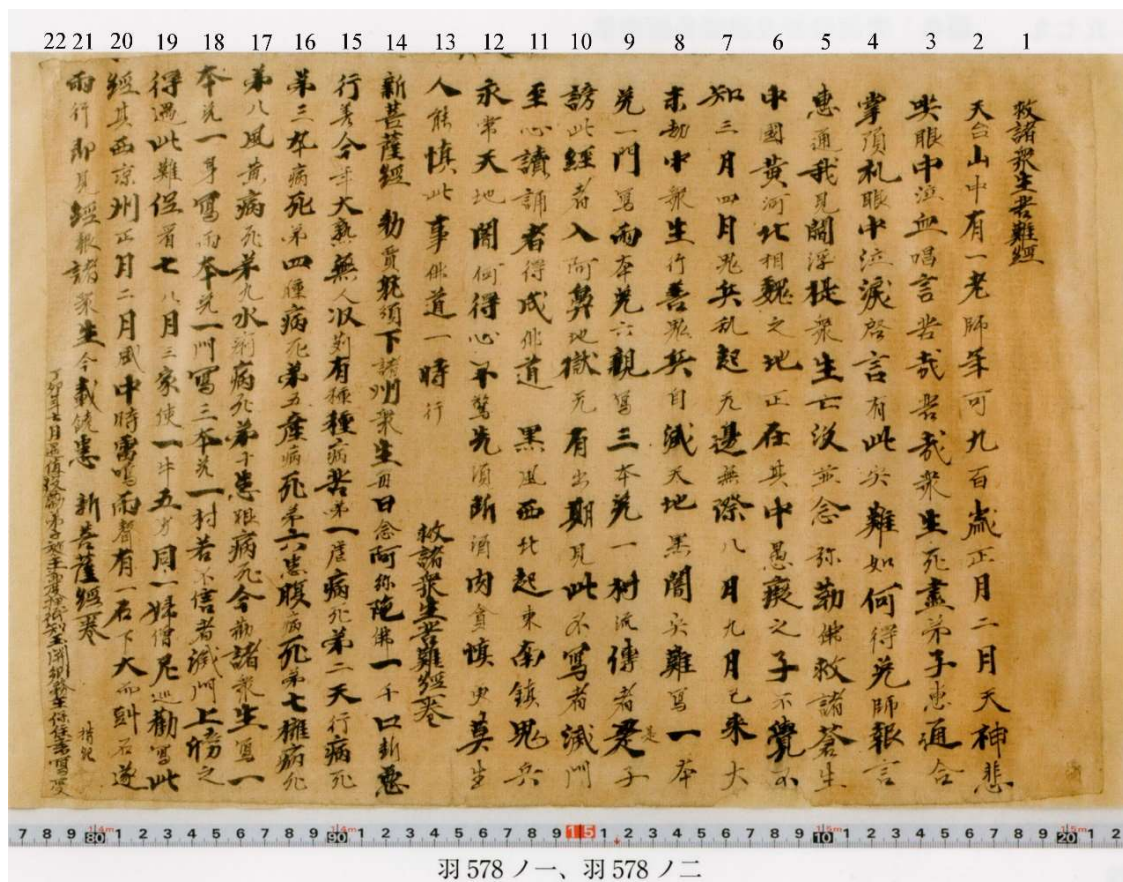 22 21 20 19 18 17 16 15 14 13 12 11 10 9 8 7 6 5 4 3 2 1
救諸衆生苦難經
天台山中有一老師年可九百歲正月二月天神悲
哭眼中泣血唱言苦哉苦哉衆生死盡弟子惠通合
掌頂礼眼中泣淚啓言有此災難如何得免師報言
惠通我見閻浮提衆生亡没並念弥勒佛救諸蒼生
中國黄河北相魏之地正在其中愚癡之子不覺不
知三月四月鬼兵乱起无邊無際八月九月已来大
末劫中衆生行善鬼兵自滅天地黑闇災難寫一本
免一門寫兩本免六親寫三本免一村流傳者是
謗此經者入阿鼻地獄无有出期見此不寫者滅門
至心讀誦者得成佛道 黑風西北起東南鎮鬼兵
永常天地闇何得心不驚先須断酒肉貪嗔更莫生
人能慎此事佛道一時行
救諸衆生苦難經一卷
新菩薩經 勑賈耽頒下諸州衆生每日念阿弥陁佛一千口断惡
行善今年大熟無人收刈有種種病苦弟一虐病死弟二天行病死
弟三卒病死弟四腫病死弟五産病死弟六患腹病死弟七癰病死
弟八風黄病死弟九水痢病死弟十患眼病死今勸諸衆生寫一
本免一身寫兩本免一門寫三本免一村若不信者滅門上牓之
得過此難但看七八月三家使一牛五男同一婦僧尼巡勸寫此
經其西凉州正月二月中時雷鳴雨聲有一石下大而㪷石遂
兩片即見經報諸衆生今載饒患 新菩薩經一卷
丁卯年七月
羽578ノ一、羽578ノ二